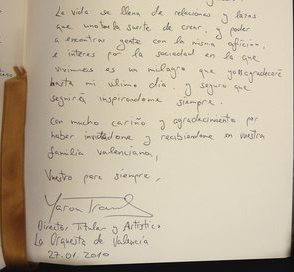 La vida se llena de relaciones y lazos
que uno tiene la suerte de crear, y poder
a encontrar gente con la misma aflicion,
e interes por la sociedad en la que
vivimos es un milagro que yo agradeceré
hasta mi ultimo dia. y seguro que
seguiría inspirandome siempre.
Con mucho cariño y agradecimiento por
haber invitadome y recibiendome en vuestra
familia valenciana,
Vuestro para siempre,
Yaron Traub
Director Titular y Artístico
La Orquesta de Valencia
27.01.2010